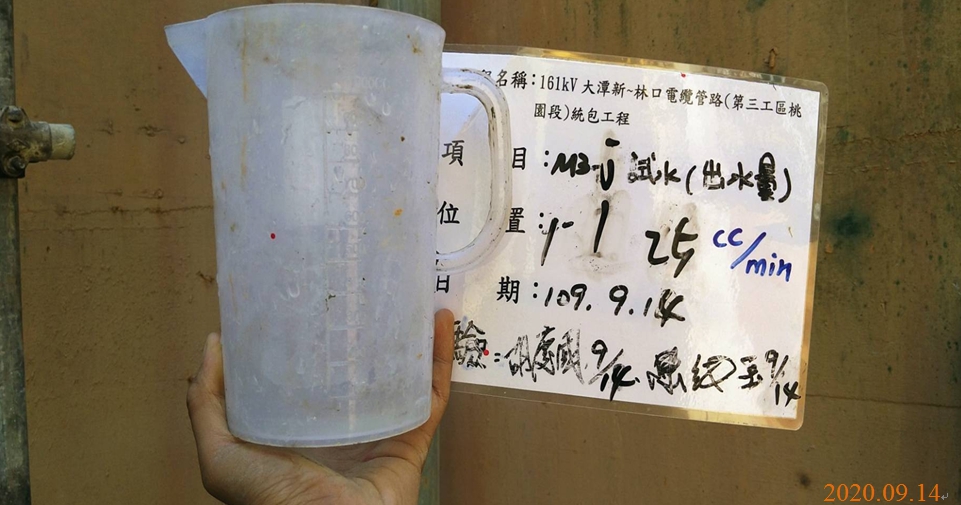 名稱：161kV 大潭新~林口電纜管路(第三工區桃
園段)統包工程
項 目：M3- 試水(出水量)
位 置：1-1 25 cc/min
日 期：109. 9.14
驗： 9/14 9/14
2020.09.14